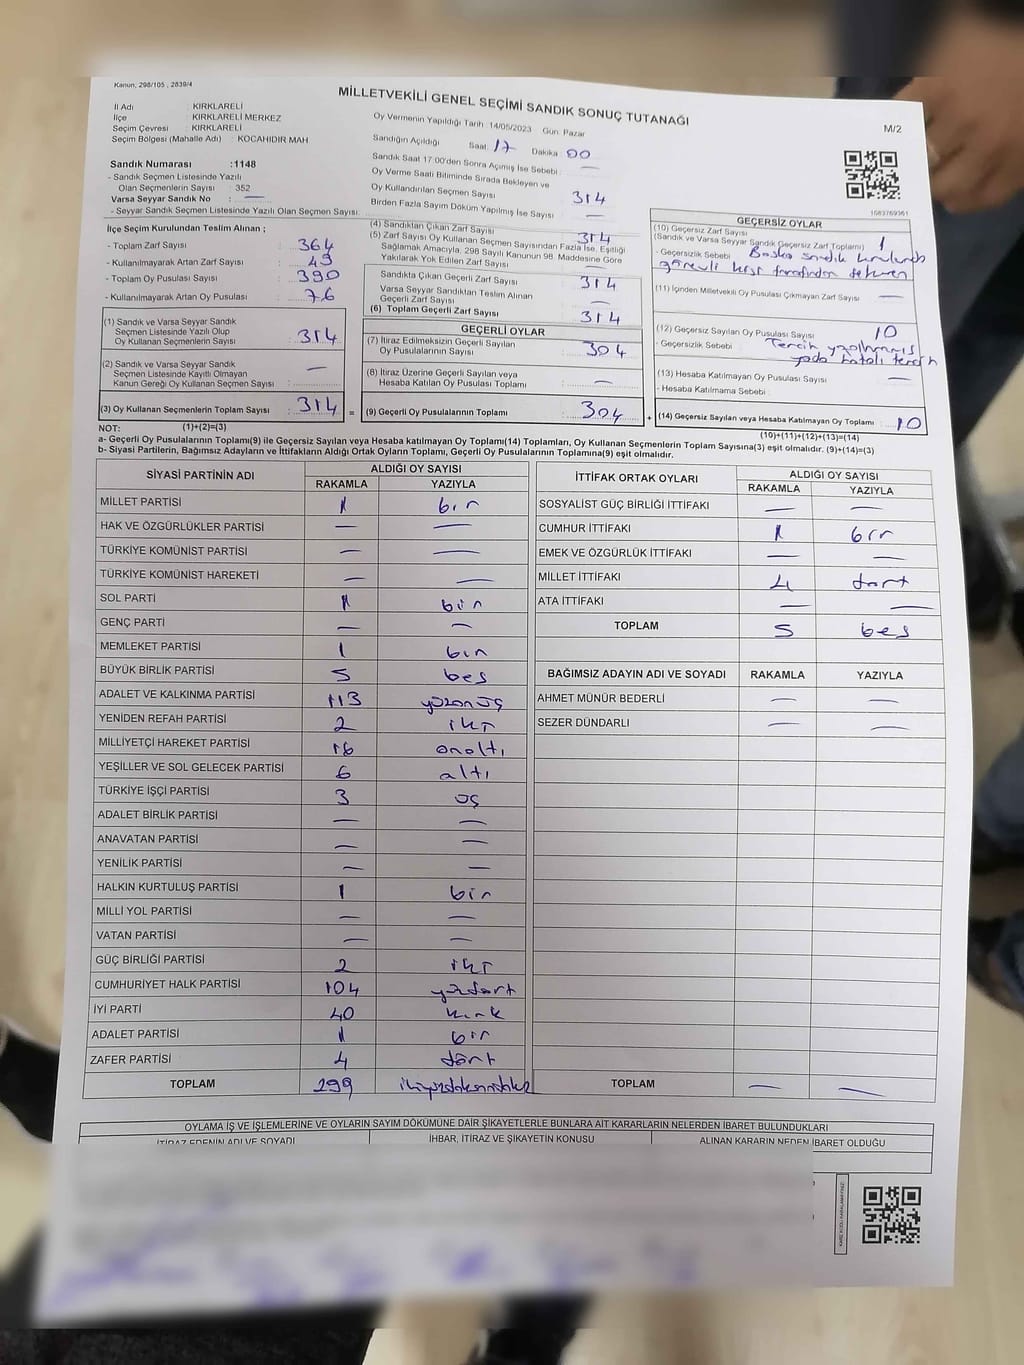 Kanun; 298/105 , 2839/4
MİLLETVEKİLİ GENEL SEÇİMİ SANDIK SONUÇ TUTANAĞI
M/2
İl Adı : KIRKLARELİ
İlçe : KIRKLARELİ MERKEZ
Seçim Çevresi : KIRKLARELİ
Seçim Bölgesi (Mahalle Adı) : KOCAHIDIR MAH
Sandık Numarası :1148
- Sandık Seçmen Listesinde Yazılı
Olan Seçmenlerin Sayısı : 352
Varsa Seyyar Sandık No : —
- Seyyar Sandık Seçmen Listesinde Yazılı Olan Seçmen Sayısı:
Oy Vermenin Yapıldığı Tarih :14/05/2023 Gün: Pazar
Sandığın Açıldığı Saat: 17 Dakika: 00
Sandık Saat 17.00'den Sonra Açımış İse Sebebi : —
Oy Verme Saati Bitiminde Sırada Bekleyen ve
Oy Kullandırılan Seçmen Sayısı 314
Birden Fazla Sayım Döküm Yapılmış İse Sayısı —
1683769361
İlçe Seçim Kurulundan Teslim Alınan ;
- Toplam Zarf Sayısı : 364
- Kullanılmayarak Artan Zarf Sayısı : 49
- Toplam Oy Pusulası Sayısı : 390
- Kullanılmayarak Artan Oy Pusulası : 76
(1) Sandık ve Varsa Seyyar Sandık
Seçmen Listesinde Yazılı Olup
Oy Kullanan Seçmenlerin Sayısı : 314
(2) Sandık ve Varsa Seyyar Sandık
Seçmen Listesinde Kayıtlı Olmayan
Kanun Gereği Oy Kullanan Seçmen Sayısı : —
(3) Oy Kullanan Seçmenlerin Toplam Sayısı : 314 =
(4) Sandıktan Çıkan Zarf Sayısı 314
(5) Zarf Sayısı Oy Kullanan Seçmen Sayısından Fazla İse, Eşitliği
Sağlamak Amacıyla, 298 Sayılı Kanunun 98. Maddesine Göre
Yakılarak Yok Edilen Zarf Sayısı —
Sandıkta Çıkan Geçerli Zarf Sayısı 314
Varsa Seyyar Sandıktan Teslim Alınan
Geçerli Zarf Sayısı —
(6) Toplam Geçerli Zarf Sayısı 314
GEÇERLİ OYLAR
(7) İtiraz Edilmeksizin Geçerli Sayılan
Oy Pusulalarının Sayısı : 304
(8) İtiraz Üzerine Geçerli Sayılan veya
Hesaba Katılan Oy Pusulası Toplamı : —
(9) Geçerli Oy Pusulalarının Toplamı : 304 +
GEÇERSİZ OYLAR
(10) Geçersiz Zarf Sayısı
(Sandık ve Varsa Seyyar Sandık Geçersiz Zarf Toplamı) 1
- Geçersizlik Sebebi : Başka sandık kurulunda
görevli kişi tarafından
(11) İçinden Milletvekili Oy Pusulası Çıkmayan Zarf Sayısı —
(12) Geçersiz Sayılan Oy Pusulası Sayısı 10
- Geçersizlik Sebebi : Tercih yapılmamış
yada hatalı tercih
(13) Hesaba Katılmayan Oy Pusulası Sayısı —
- Hesaba Katılmama Sebebi :
(14) Geçersiz Sayılan veya Hesaba Katılmayan Oy Toplamı : 10
NOT: (1)+(2)=(3)
(10)+(11)+(12)+(13)=(14)
a- Geçerli Oy Pusulalarının Toplamı(9) ile Geçersiz Sayılan veya Hesaba katılmayan Oy Toplamı(14) Toplamları, Oy Kullanan Seçmenlerin Toplam Sayısına(3) eşit olmalıdır. (9)+(14)=(3)
b- Siyasi Partilerin, Bağımsız Adayların ve İttifakların Aldığı Ortak Oyların Toplamı, Geçerli Oy Pusulalarının Toplamına(9) eşit olmalıdır.
SİYASİ PARTİNİN ADI ALDIĞI OY SAYISI
RAKAMLA YAZIYLA
MİLLET PARTİSİ 1 bir
HAK VE ÖZGÜRLÜKLER PARTİSİ — —
TÜRKİYE KOMÜNİST PARTİSİ — —
TÜRKİYE KOMÜNİST HAREKETİ — —
SOL PARTİ 1 bir
GENÇ PARTİ — —
MEMLEKET PARTİSİ 1 bir
BÜYÜK BİRLİK PARTİSİ 5 beş
ADALET VE KALKINMA PARTİSİ 113 yüzonüç
YENİDEN REFAH PARTİSİ 2 iki
MİLLİYETÇİ HAREKET PARTİSİ 16 onaltı
YEŞİLLER VE SOL GELECEK PARTİSİ 6 altı
TÜRKİYE İŞÇİ PARTİSİ 3 üç
ADALET BİRLİK PARTİSİ — —
ANAVATAN PARTİSİ — —
YENİLİK PARTİSİ — —
HALKIN KURTULUŞ PARTİSİ 1 bir
MİLLİ YOL PARTİSİ — —
VATAN PARTİSİ — —
GÜÇ BİRLİĞİ PARTİSİ 2 iki
CUMHURİYET HALK PARTİSİ 104 yüzdört
İYİ PARTİ 40 kırk
ADALET PARTİSİ 1 bir
ZAFER PARTİSİ 4 dört
TOPLAM 299 ikiyüzdoksandokuz
İTTİFAK ORTAK OYLARI ALDIĞI OY SAYISI
RAKAMLA YAZIYLA
SOSYALİST GÜÇ BİRLİĞİ İTTİFAKI — —
CUMHUR İTTİFAKI 1 bir
EMEK VE ÖZGÜRLÜK İTTİFAKI — —
MİLLET İTTİFAKI 4 dört
ATA İTTİFAKI — —
TOPLAM 5 beş
BAĞIMSIZ ADAYIN ADI VE SOYADI RAKAMLA YAZIYLA
AHMET MÜNÜR BEDERLİ — —
SEZER DÜNDARLI — —
TOPLAM — —
OYLAMA İŞ VE İŞLEMLERİNE VE OYLARIN SAYIM DÖKÜMÜNE DAİR ŞİKAYETLERLE BUNLARA AİT KARARLARIN NELERDEN İBARET BULUNDUKLARI
İTİRAZ EDENİN ADI VE SOYADI İHBAR, İTİRAZ VE ŞİKAYETİN KONUSU ALINAN KARARIN NEDEN İBARET OLDUĞU